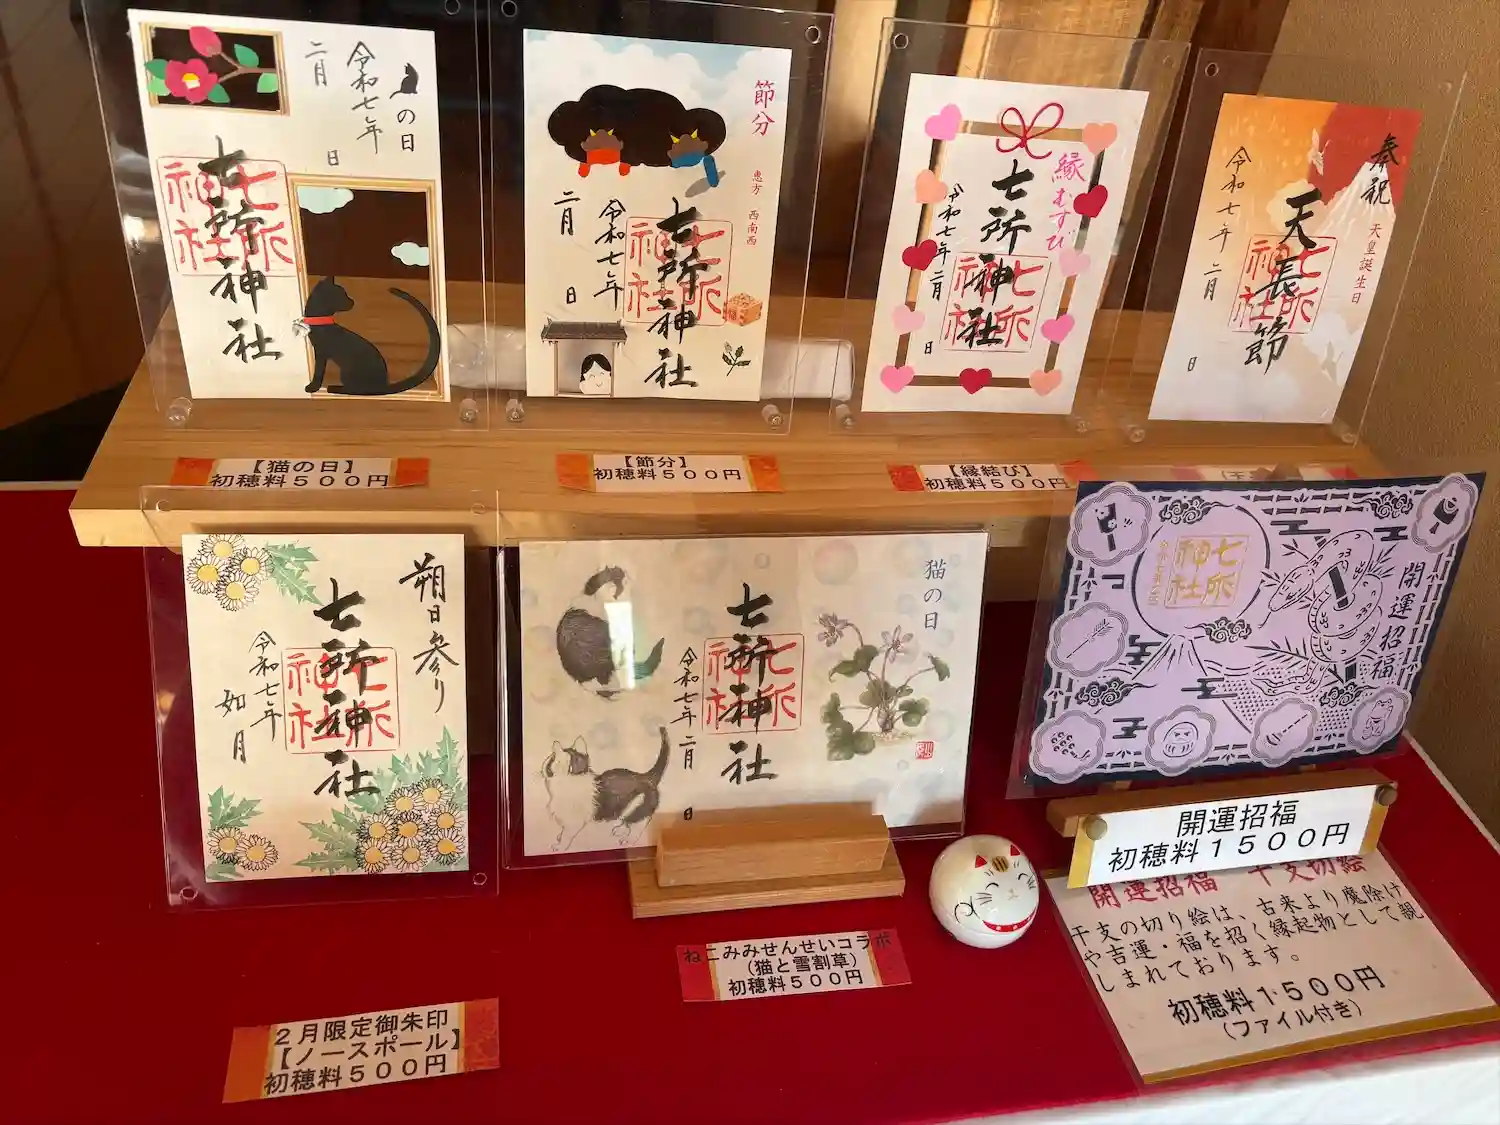 の日
令和七年
二月
日
七所神社
七所
神社
【猫の日】
初穂料500円
節分
恵方 西南西
令和七年
二月
日
七所神社
七所
神社
【節分】
初穂料500円
縁むすび
七所神社
令和七年二月
日
七所
神社
【縁結び】
初穂料500円
奉祝
天皇誕生日
天長節
令和七年二月
日
七所
神社
朔日参り
七所神社
令和七年
如月
七所
神社
2月限定御朱印
【ノースポール】
初穂料500円
猫の日
七所神社
令和七年二月
日
七所
神社
ねこみみせんせいコラボ
(猫と雪割草)
初穂料500円
開運招福
七所
神社
開運招福
初穂料1500円
開運招福 干支切絵
干支の切り絵は、古来より魔除け
や吉運・福を招く縁起物として親
しまれております。
初穂料1500円
(ファイル付き)